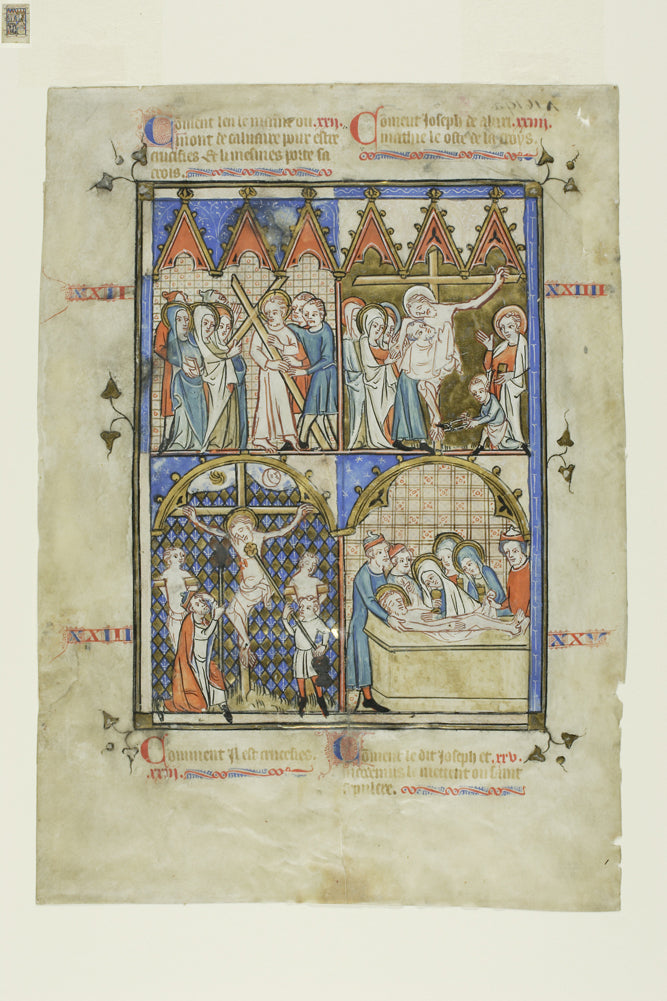 Coment len le maine ou .xxii.
mont de calvaire pour estre
crucefies. Et li mesmes porte sa
crois.
Coment Joseph de .xxiiii.
le oste de la croys.
XXII
XXIIII
XXIII
XXV
Comment Il est crucefies.
.xxiii.
Coment le dit Joseph et .xxv.
le mettent ou saint
sepulcre.